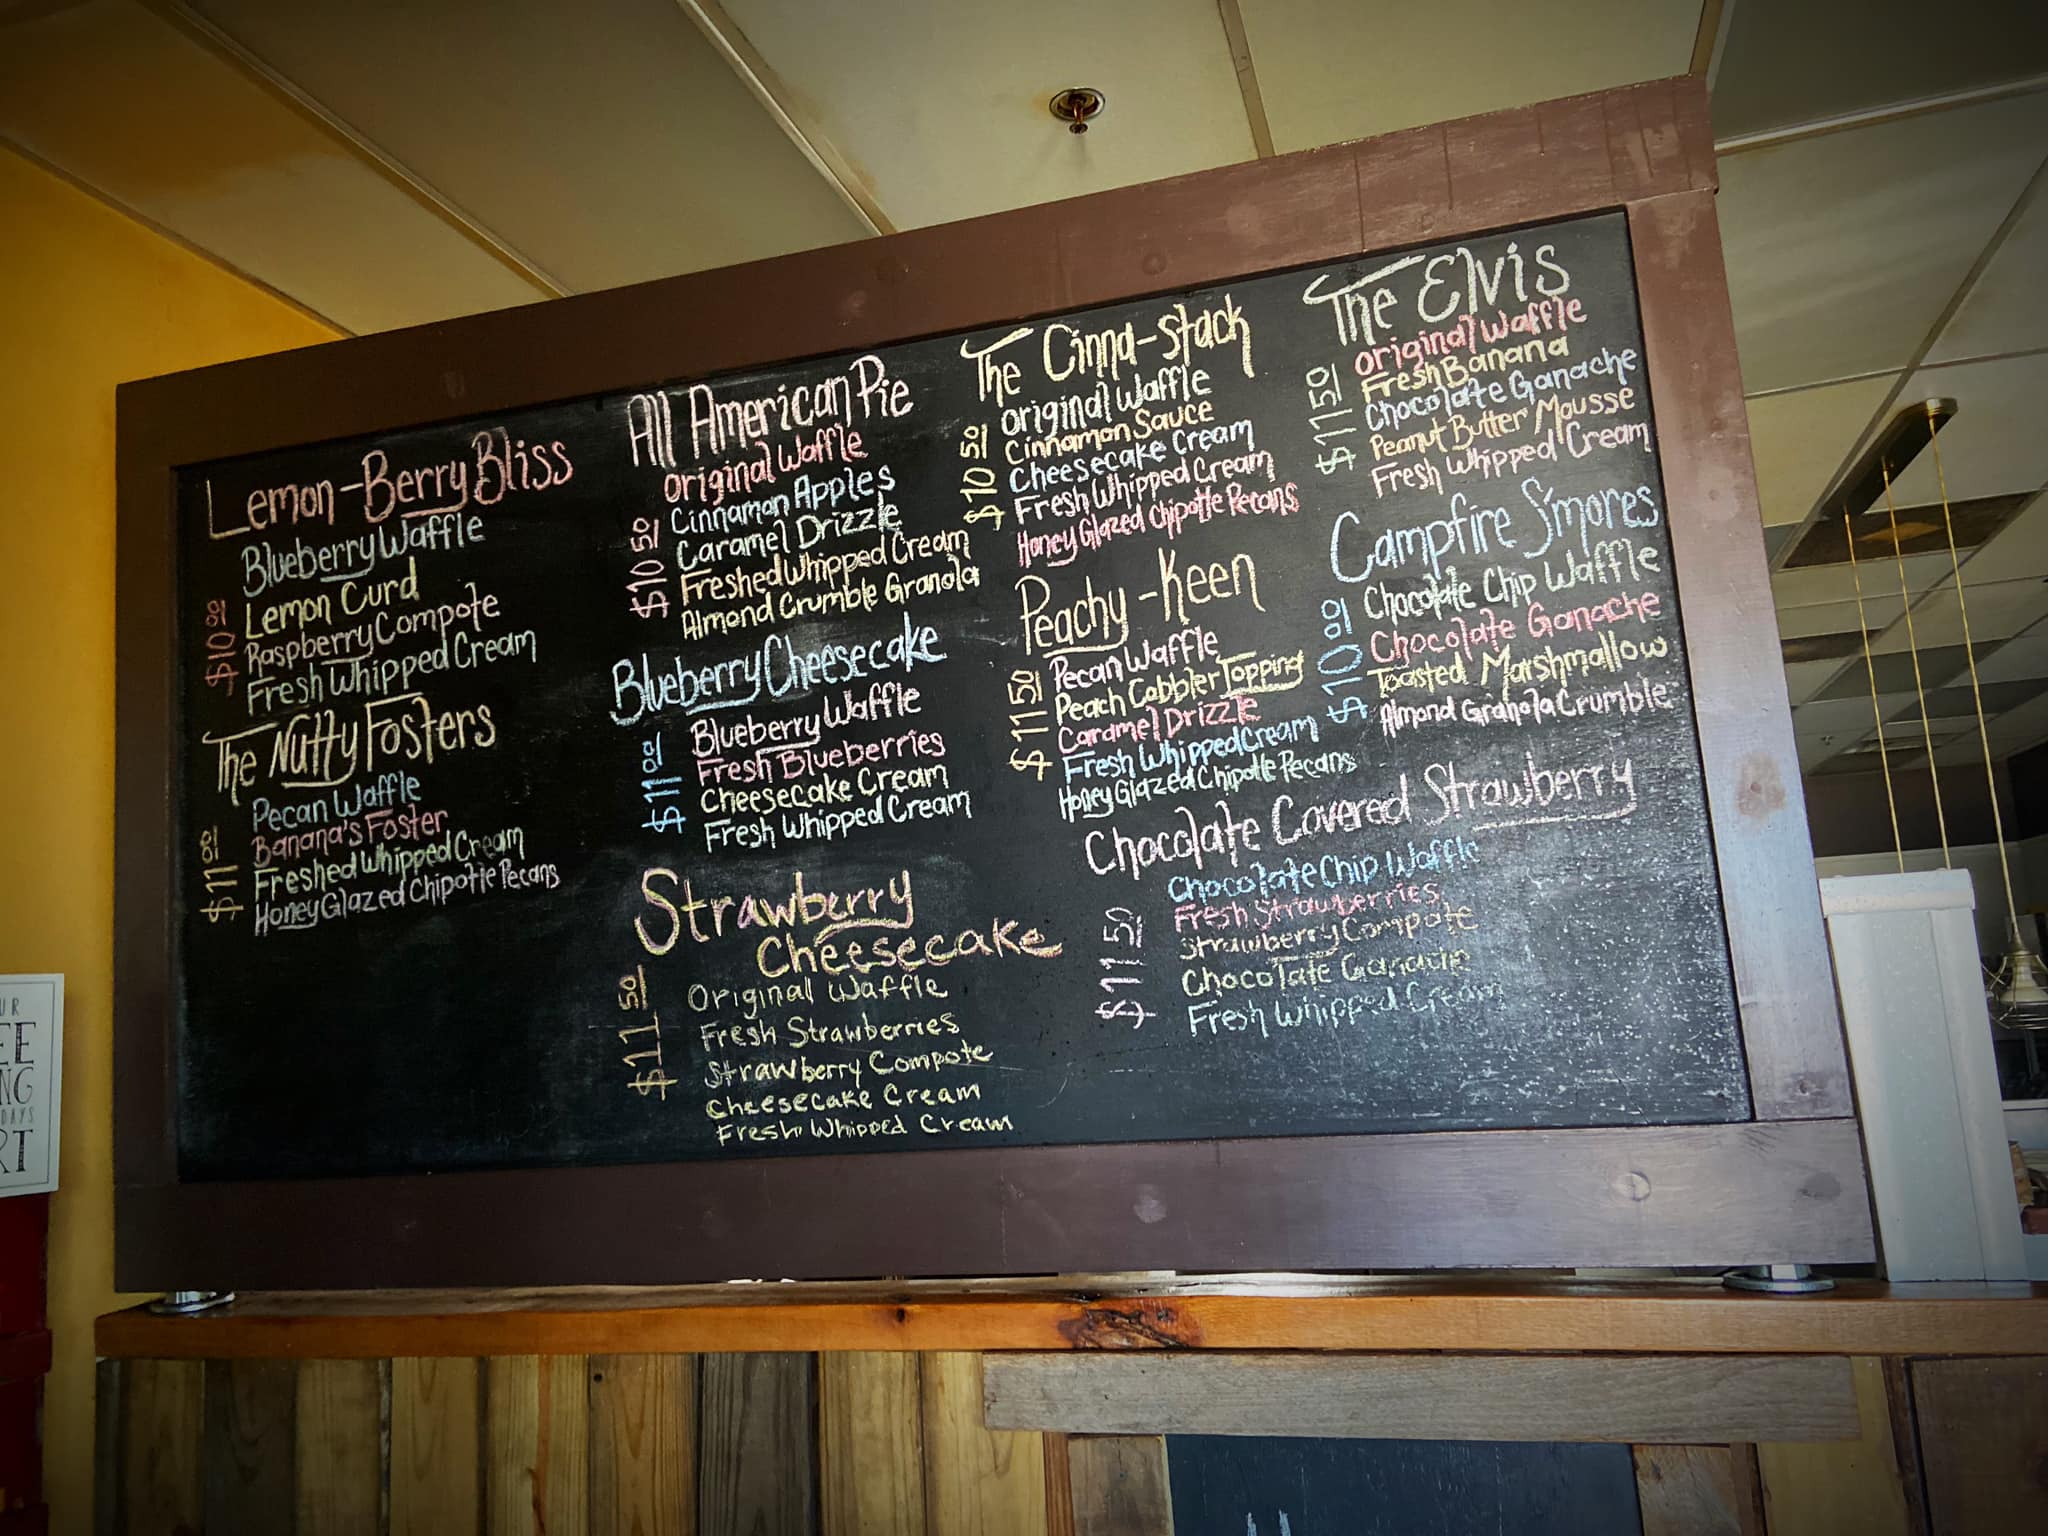 Lemon-Berry Bliss
Blueberry Waffle
Lemon Curd
Raspberry Compote
Fresh Whipped Cream
$10.00
The Nutty Fosters
Pecan Waffle
Banana's Foster
Freshed Whipped Cream
Honey Glazed Chipotle Pecans
$11.00
All American Pie
Original Waffle
Cinnamon Apples
Caramel Drizzle
Freshed Whipped Cream
Almond Crumble Granola
$10.50
Blueberry Cheesecake
Blueberry Waffle
Fresh Blueberries
Cheesecake Cream
Fresh Whipped Cream
$11.00
Strawberry
Cheesecake
Original Waffle
Fresh Strawberries
Strawberry Compote
Cheesecake Cream
Fresh Whipped Cream
$11.50
The Cinna-stack
Original Waffle
Cinnamon Sauce
Cheesecake Cream
Fresh Whipped Cream
Honey Glazed Chipotte Pecans
$10.50
Peachy-Keen
Pecan Waffle
Peach Cobbler Topping
Caramel Drizzle
Fresh Whipped Cream
Honey Glazed Chipotle Pecans
$11.50
The Elvis
Original Waffle
Fresh Banana
Chocolate Ganache
Peanut Butter Mousse
Fresh Whipped Cream
$11.50
Campfire S'mores
Chocolate Chip Waffle
Chocolate Ganache
Toasted Marshmallow
Almond Granola Crumble
$10.00
Chocolate Covered Strawberry
Chocolate Chip Waffle
Fresh Strawberries
Strawberry Compote
Chocolate Ganache
Fresh Whipped Cream
$11.50
DAYS